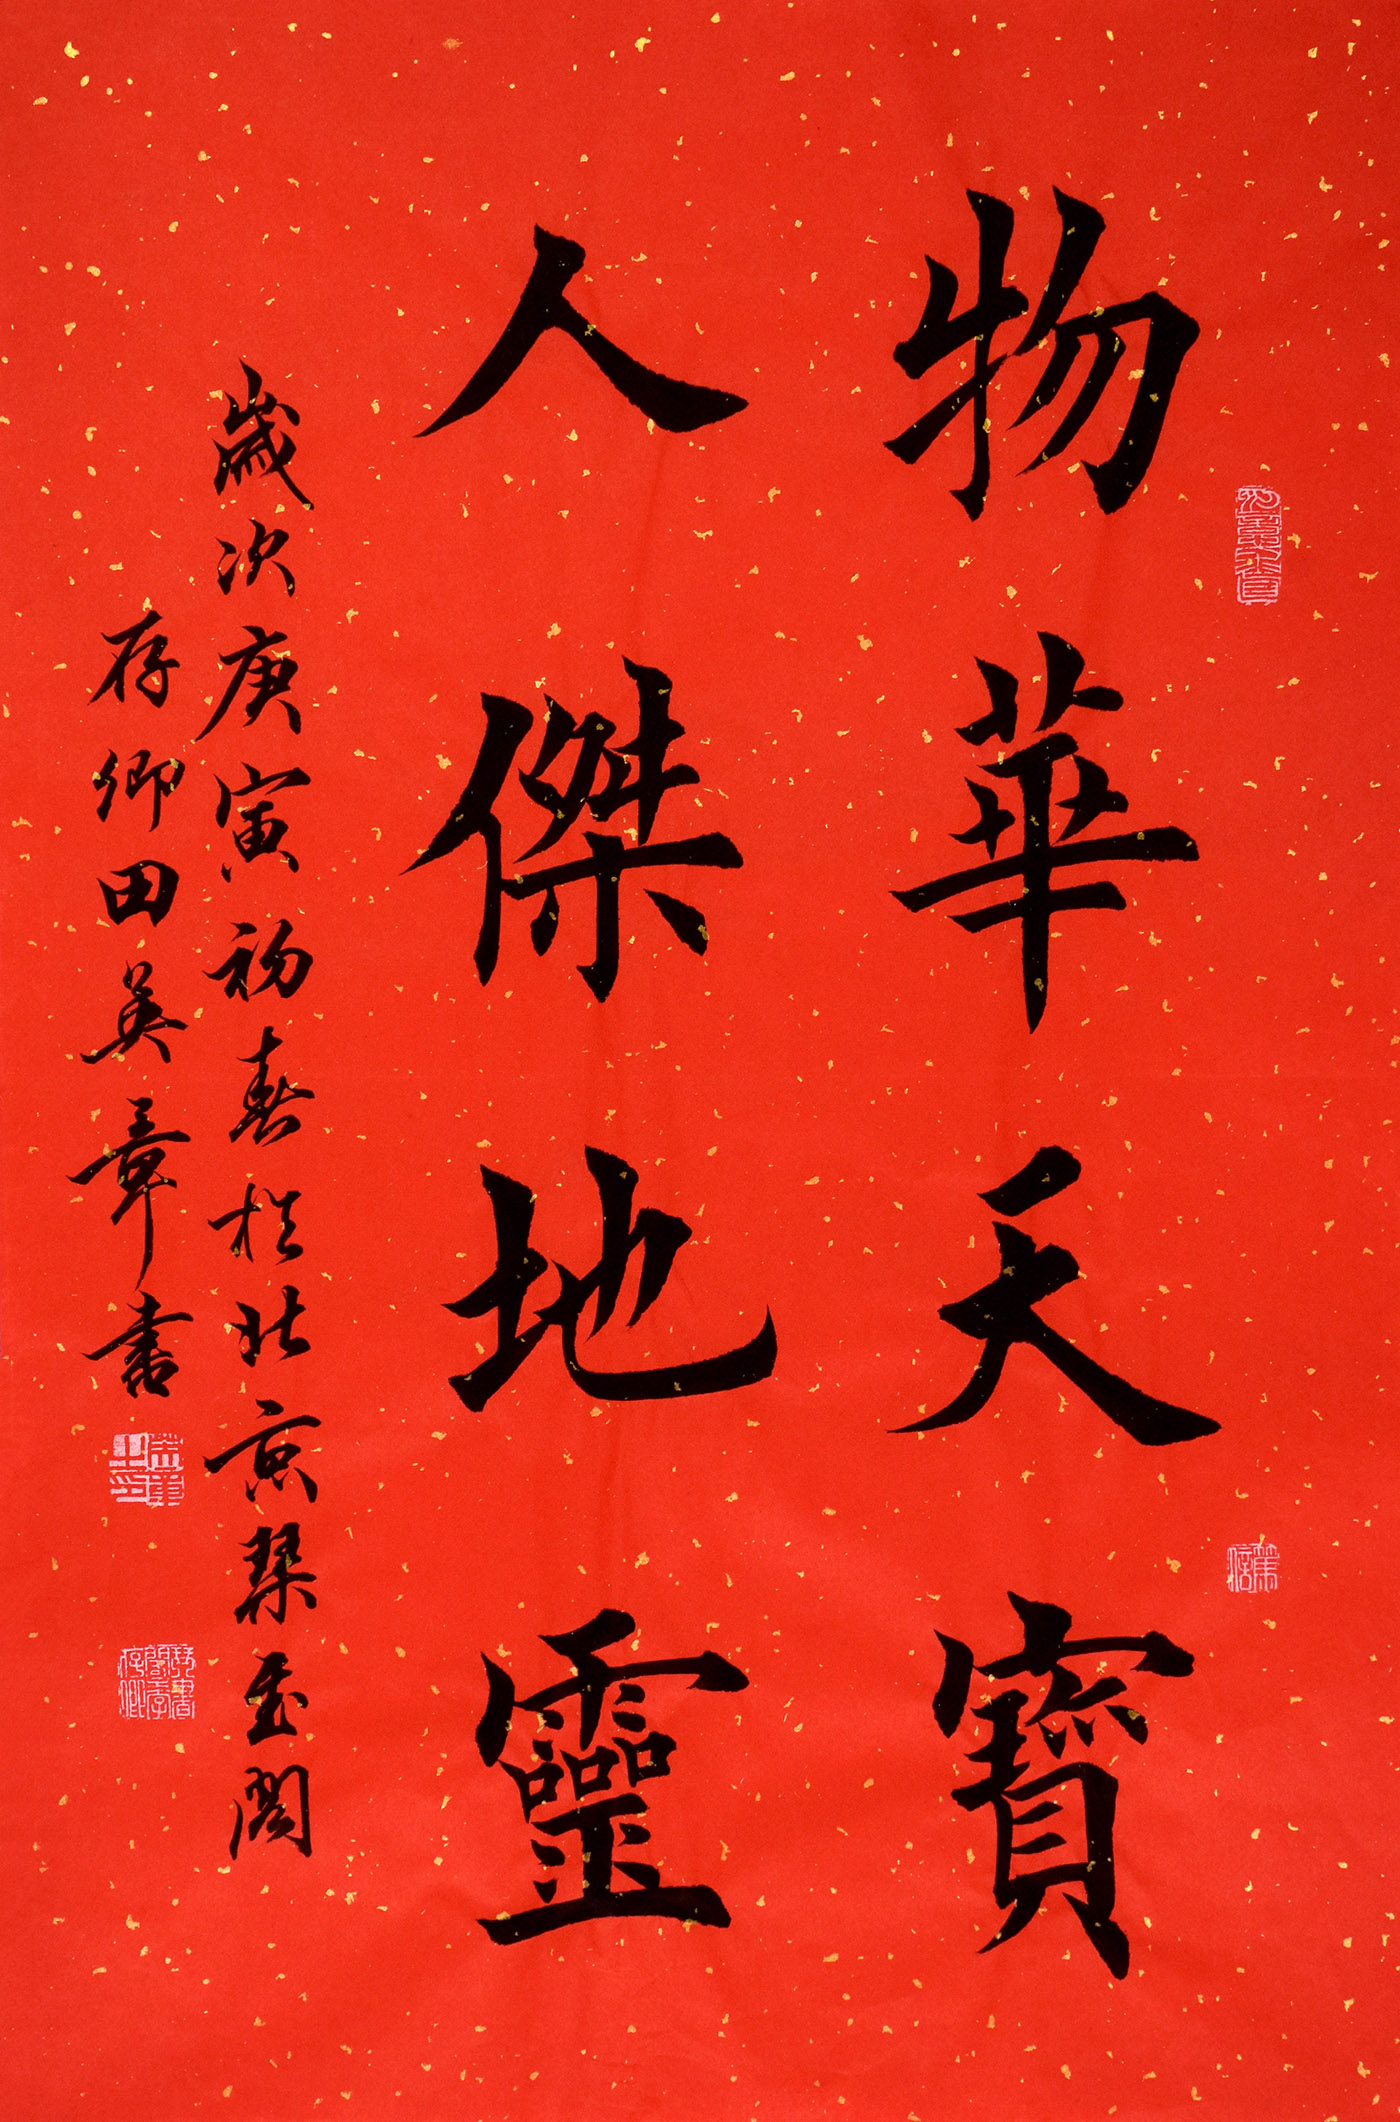 物華天寶
人傑地靈
歲次庚寅初春於北京琹書閣
存卿田英章書